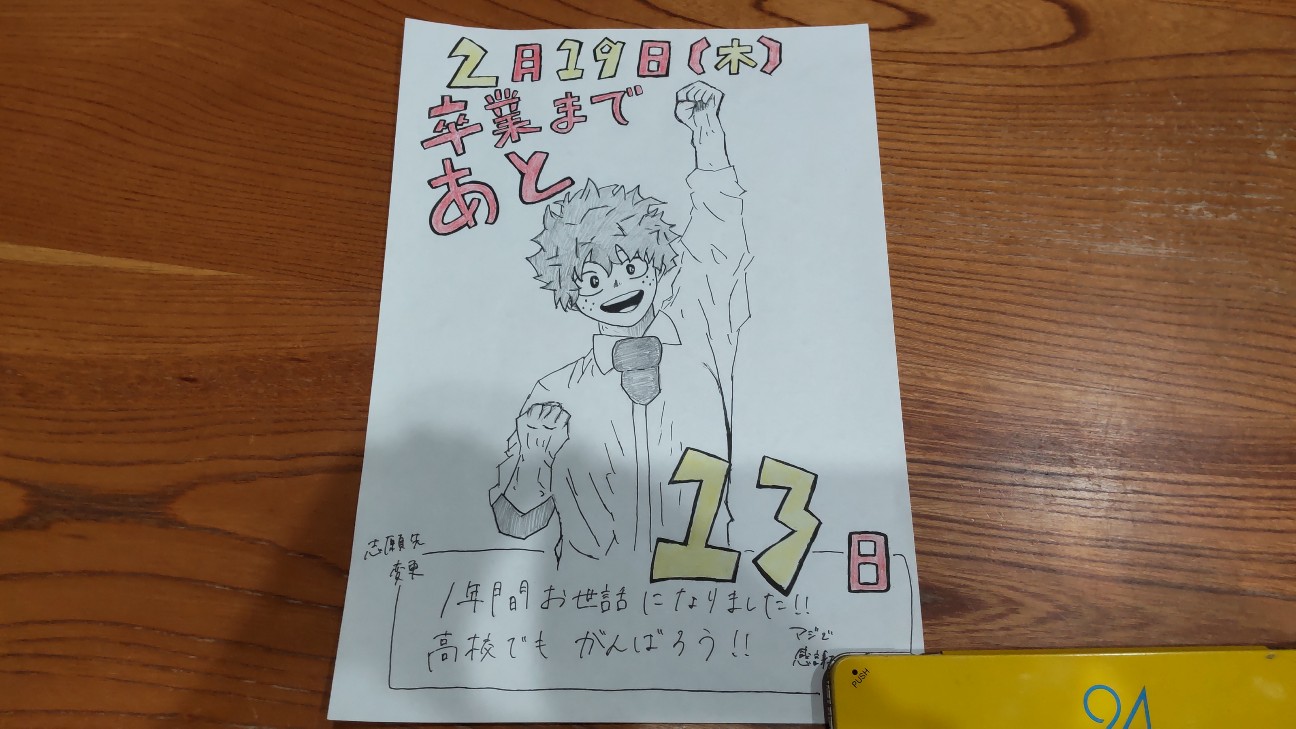 2月19日(木)
卒業まで
あと
13日
志願先
変更
1年間お世話になりました!!
高校でも がんばろう!!
マジで
感謝
PUSH
24